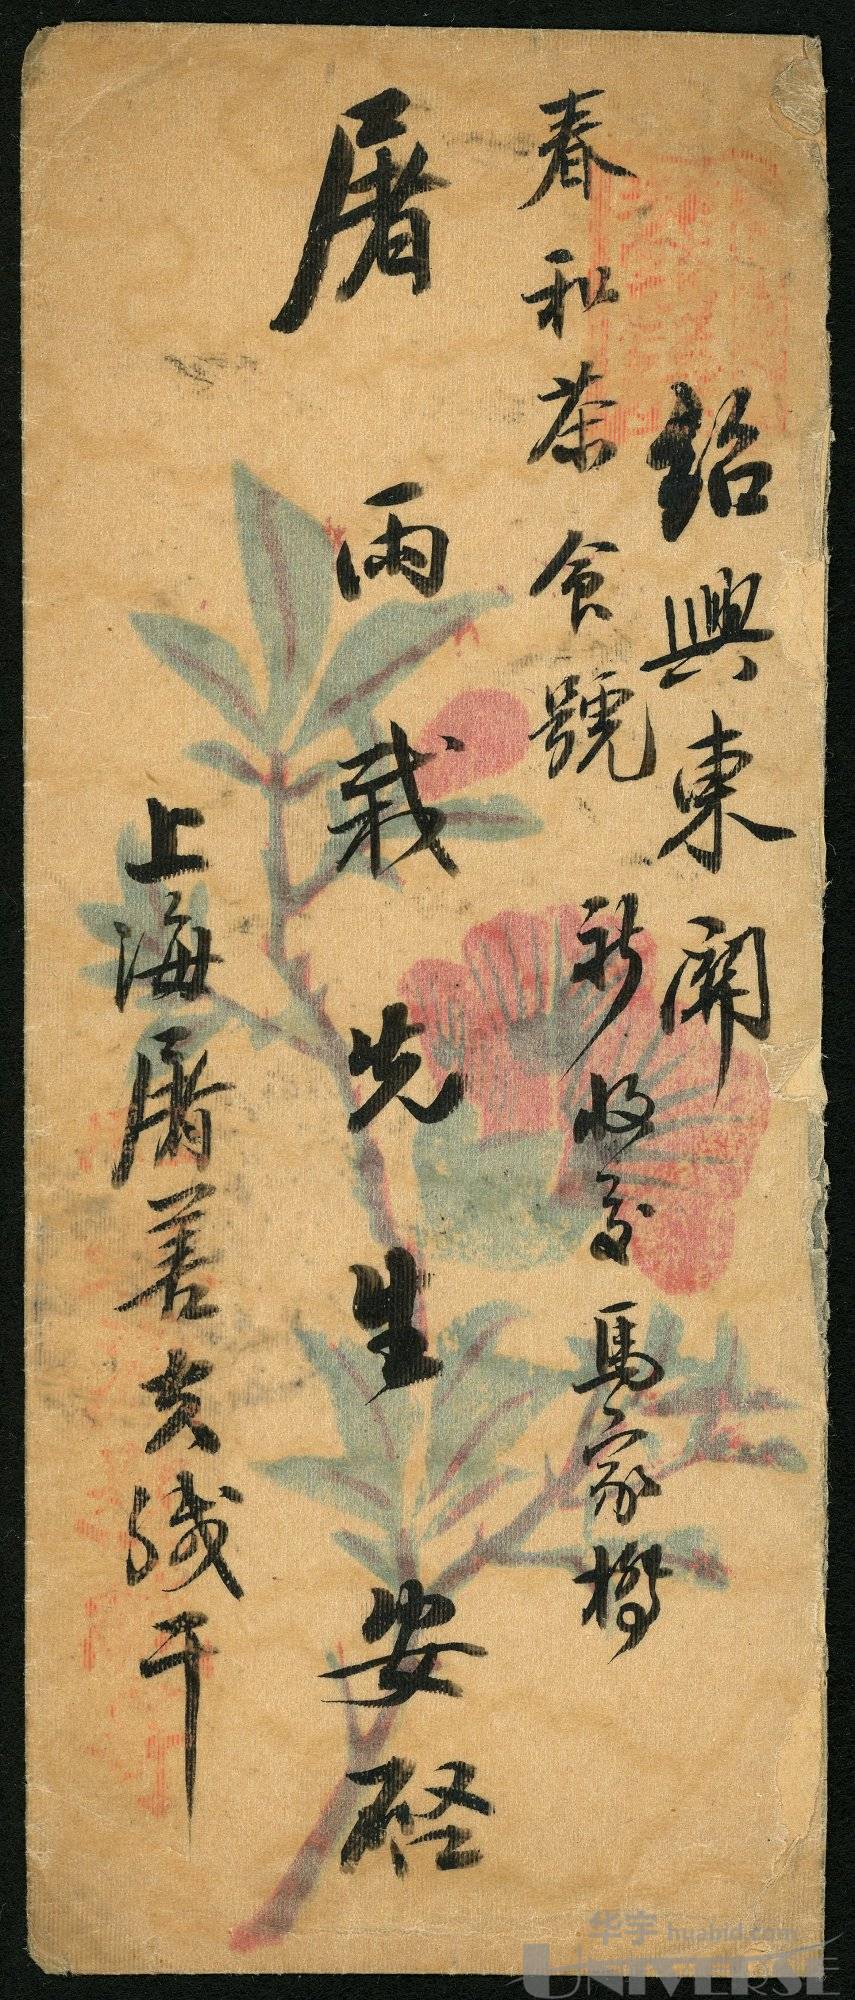 紹興東關
春和茶食號
祈收交馬家橋
屠雨栽先生安啓
上海屠善夫緘干
华宇 huabid.com
UNIVERSE